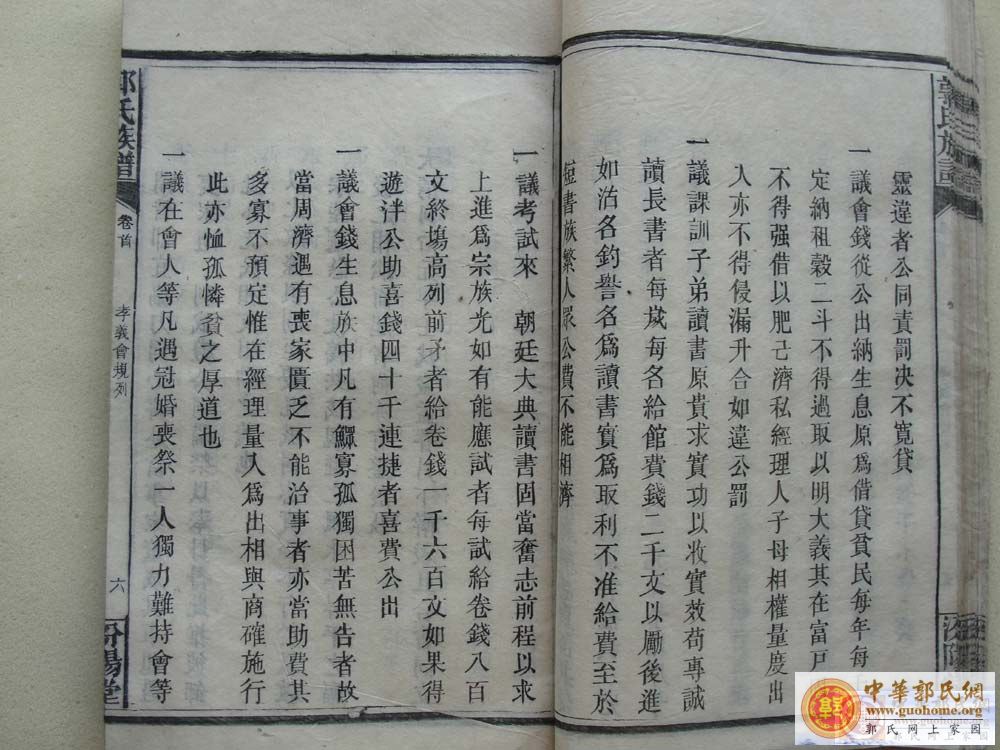 靈違者公同責罰决不寛貸
一議會錢從公出納生息原爲借貸貧民每年每
定納租穀二斗不得過取以明大義其在富戸
不得强借以肥己濟私經理人子母相權量度出
入亦不得侵漏升合如違公罰
一議課訓子弟讀書原貴求實功以收實效苟專誠
讀長書者每歲每名給館費錢二千文以勵後進
如沽名釣譽名爲讀書實爲取利不准給費至於
短書族繁人眾公費不能相濟
一議考試來 朝廷大典讀書固當奮志前程以求
上進爲宗族光如有能應試者每試給卷錢八百
文終塲高列前矛者給卷錢一千六百文如果得
遊泮公助喜錢四十千連捷者喜費公出
一議會錢生息族中凡有鰥寡孤獨困苦無告者故
當周濟遇有喪家匱乏不能治事者亦當助費其
多寡不預定惟在經理量入爲出相與商確施行
此亦恤孤憐貧之厚道也
一議在會人等凡遇冠婚喪祭一人獨力難持會等
郭氏族譜
卷首
孝義會規列
六
汾陽堂
郭氏族譜
汾陽
中華郭氏網
www.guohome.org
郭氏网上家园